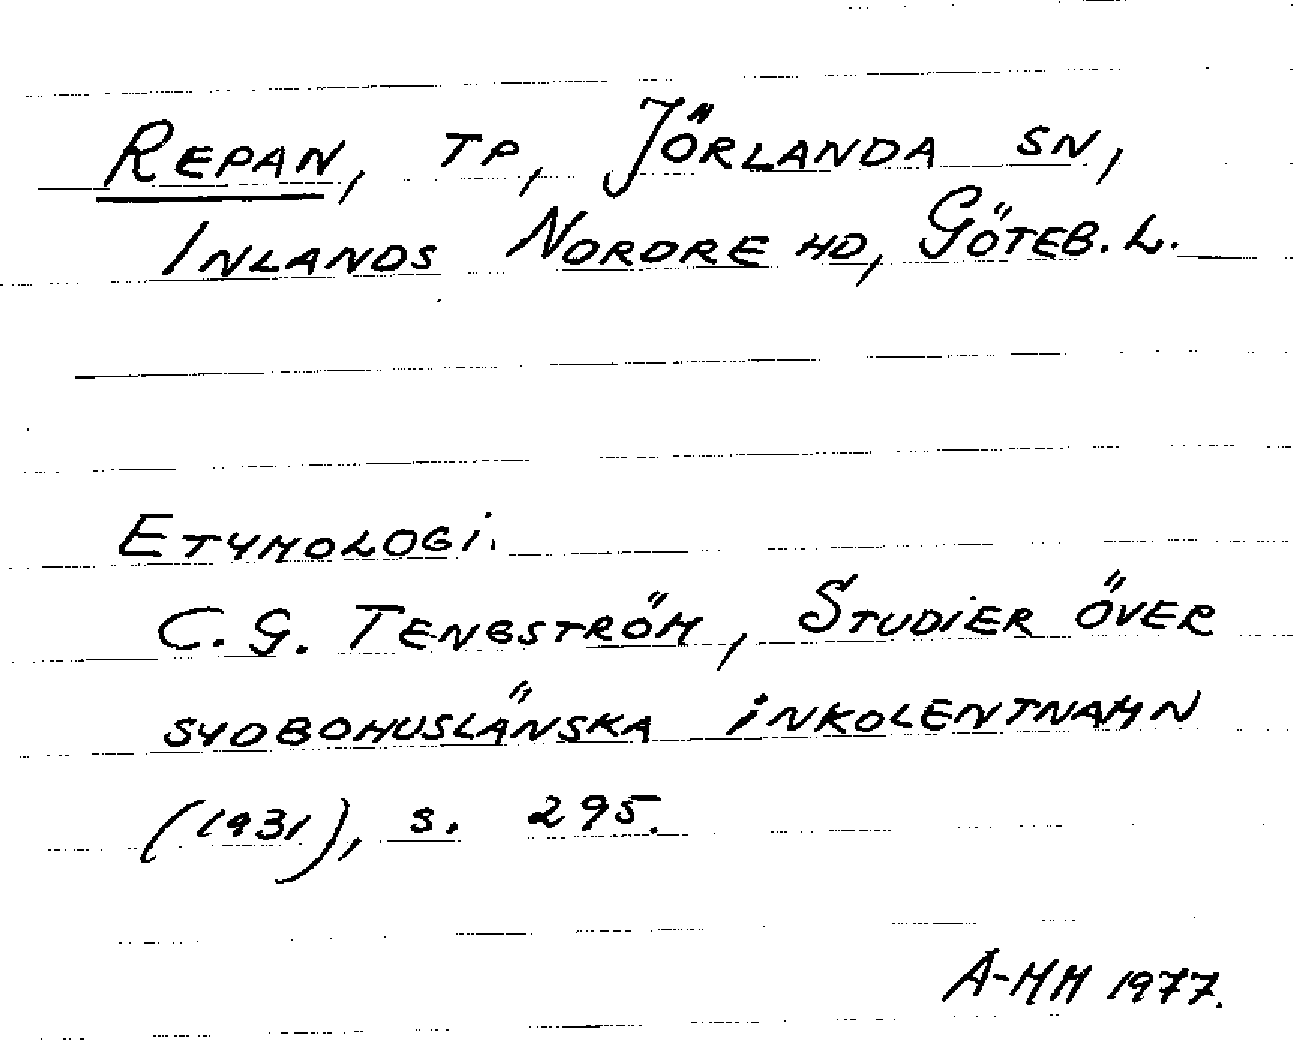 REPAN, TP, JÖRLANDA SN,
INLANDS NORDRE HD, GÖTEB. L.
ETYMOLOGI.
C. G. TENGSTRÖM, STUDIER ÖVER
SYDBOHUSLÄNSKA INKOLENTNAMN
(1931), s. 295.
A-MM 1977.